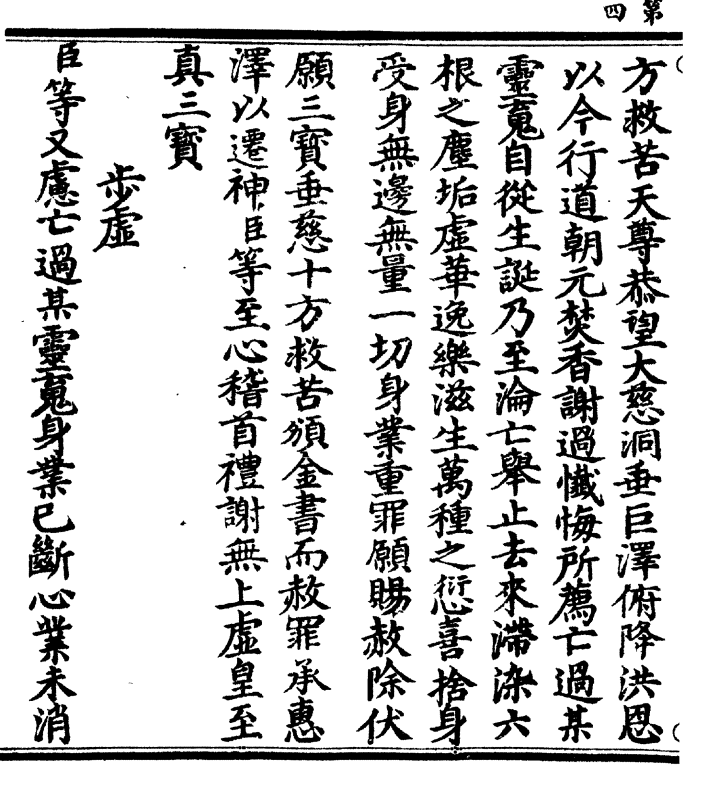 第
四
方救苦天尊恭望大慈洞垂巨澤俯降洪恩
以今行道朝元焚香謝過懺悔所薦亡過某
靈䰟自從生誕乃至淪亡舉止去來滯染六
根之塵垢虛華逸樂滋生萬種之愆喜捨身
受身無邊無量一切身業重罪願賜赦除伏
願三寶垂慈十方救苦頒金書而赦罪承惠
澤以遷神臣等至心稽首禮謝無上虛皇至
真三寶
步虛
臣等又慮亡過某靈䰟身業已斷心業未消